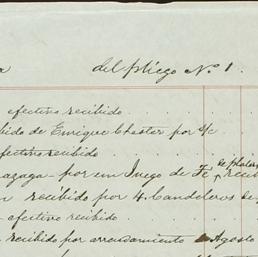 a del pliego No. 1.
efectivo recibido
bido de Enrique Chester por %c
efectivo recibido
azaga - por un Juego de Te de plata recib
n recibido por 4 Candeleros de
- efectivo recibido
recibido por arrendamiento Agosto